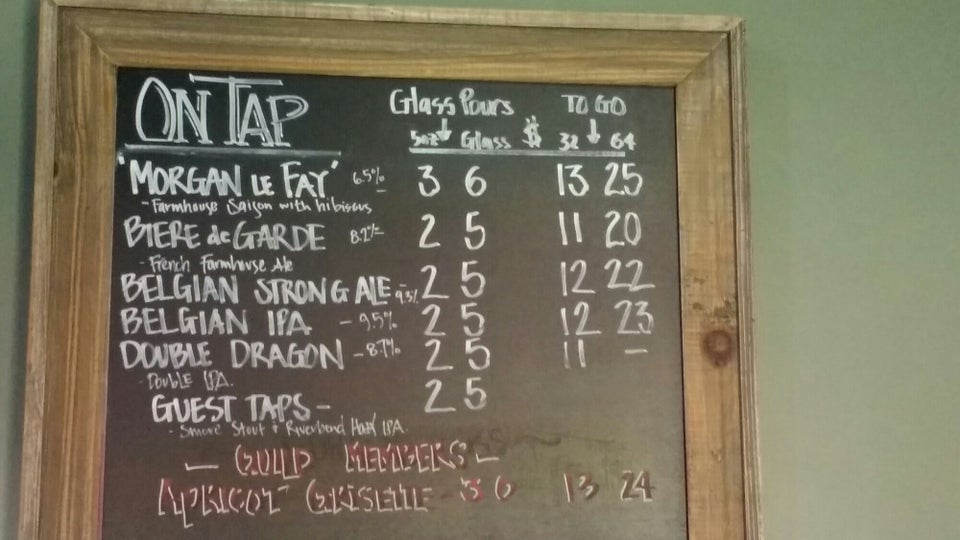 ON TAP Glass Pours TO GO
5oz Glass $ 32 64
"MORGAN LE FAY" 6.5% 3 6 13 25
- Farmhouse Saison with hibiscus
BIERE de GARDE 8.2% 2 5 11 20
- French Farmhouse Ale
BELGIAN STRONG ALE - 9.3% 2 5 12 22
BELGIAN IPA - 9.5% 2 5 12 23
DOUBLE DRAGON - 8.7% 2 5 11 -
- Double IPA.
GUEST TAPS - 2 5
- Smore Stout & Riverbend IPA.
- GUILD MEMBERS -
APRICOT GRISETTE - 3 6 13 24